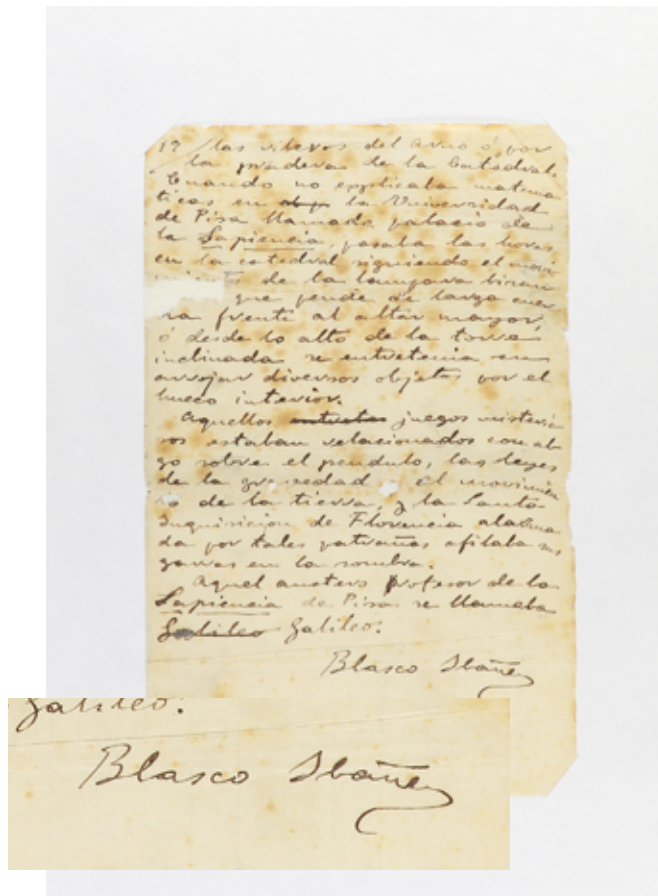 19 las riberas del Arno ó por
la pradera de la Catedral.
Cuando no esplicaba matema
ticas en la Universidad
de Pisa llamada palacio de
la Sapiencia, pasaba las horas
en la catedral siguiendo el movi
miento de la lampara bizan
que pende de larga cuer
da frente al altar mayor,
ó desde lo alto de la torre
inclinada se entretenia en
arrojar diversos objetos por el
hueco interior.
Aquellos juegos misterio
sos estaban relacionados con al
go sobre el pendulo, las leyes
de la gravedad el movimien
to de la tierra, y la Santa
Inquisicion de Florencia alarma
da por tales patrañas afilaba sus
garras en la sombra.
Aquel austero profesor de la
Sapiencia de Pisa se llamaba
Galileo Galileo.
Blasco Ibañez
Galileo.
Blasco Ibañez